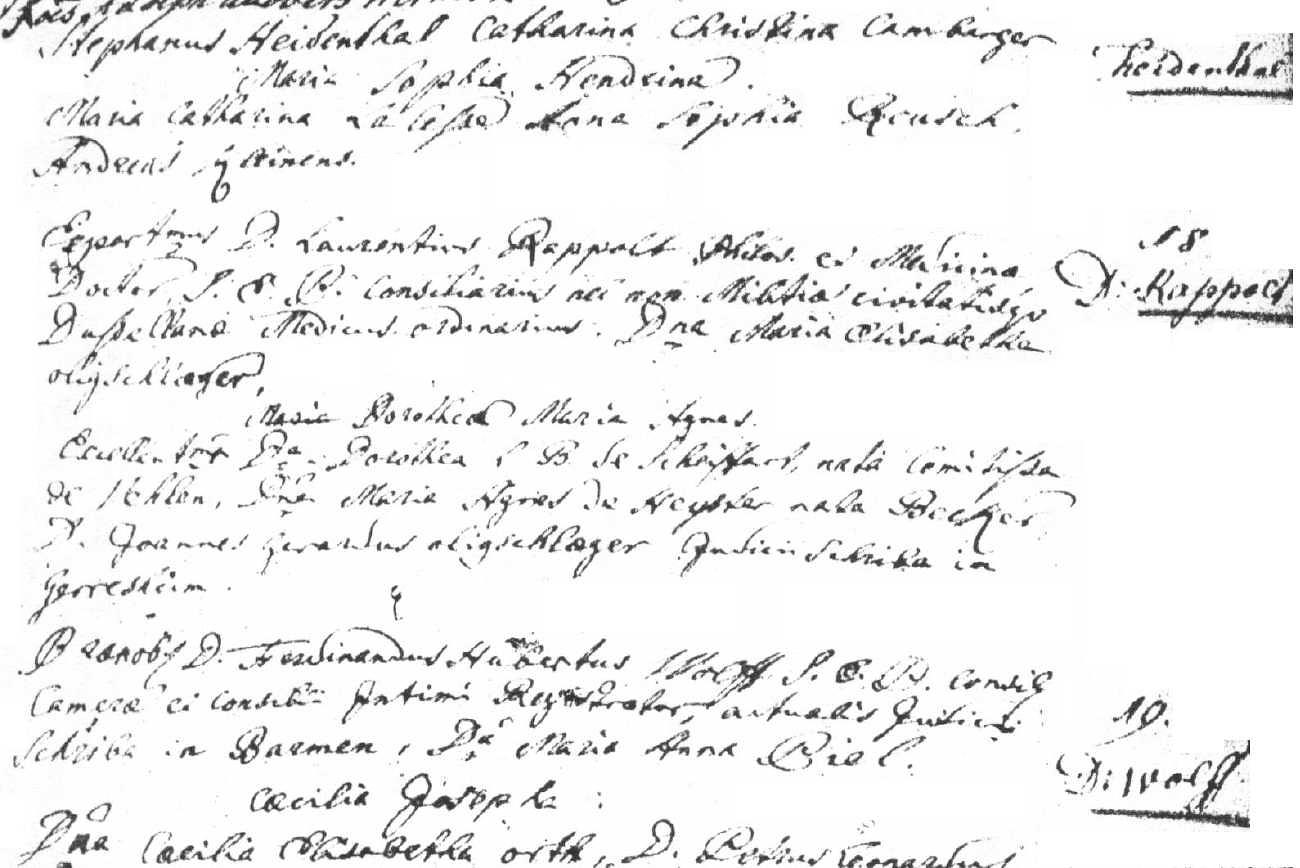 Stephanus Heidenthal Catharina Christina Camburger
Heidenthal
Maria Sophia Hendrina.
Maria Catharina Anna Sophia Reusch.
Andreas
Expertmus D. Laurentius Rappolt Philos. et Medicina
18
Doctor, S. E. P. Consiliarius nec non Militiæ civitatisq
D: Rappolt
Dusselanæ Medicus ordinarius. Dna Maria Elisabetha
oligschlæger,
Maria Dorothea Maria Agnes.
Dna Dorothea L. B. de Scheiffart, nata Comitissa
de Vehlen, Dna Maria Agnes de Heyster nata Becker
D. Joannes Gerardus oligschlæger Judicii Schriba in
Gerresheim.
Prænob. D. Ferdinandus Hubertus Wolff S. E. P. consil
Cameræ et Intimi Registrator, actualis Judicii
19.
Schriba in Barmen, Da Maria Anna Biel.
D: Wolff
Cæcilia Josepha :
Dna Cæcilia Elisabetha orth, D. Petrus